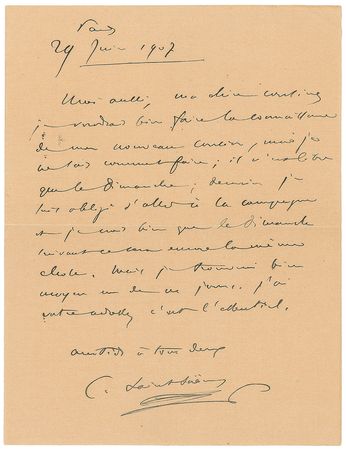 Paris
29 Juin 1907
Moi aussi, ma chère cousine,
je voudrais bien faire la connaissance
de mon nouveau cousin, mais je
ne sais comment faire ; il n'est libre
que le Dimanche ; demain je
suis obligé d'aller à la campagne
et je crois bien que le Dimanche
suivant ce sera encore la même
chose. Mais je trouverai bien
moyen un de ces jours. J'ai
votre adresse, c'est l'essentiel.
amitiés à tous deux
C. Saint-Saëns